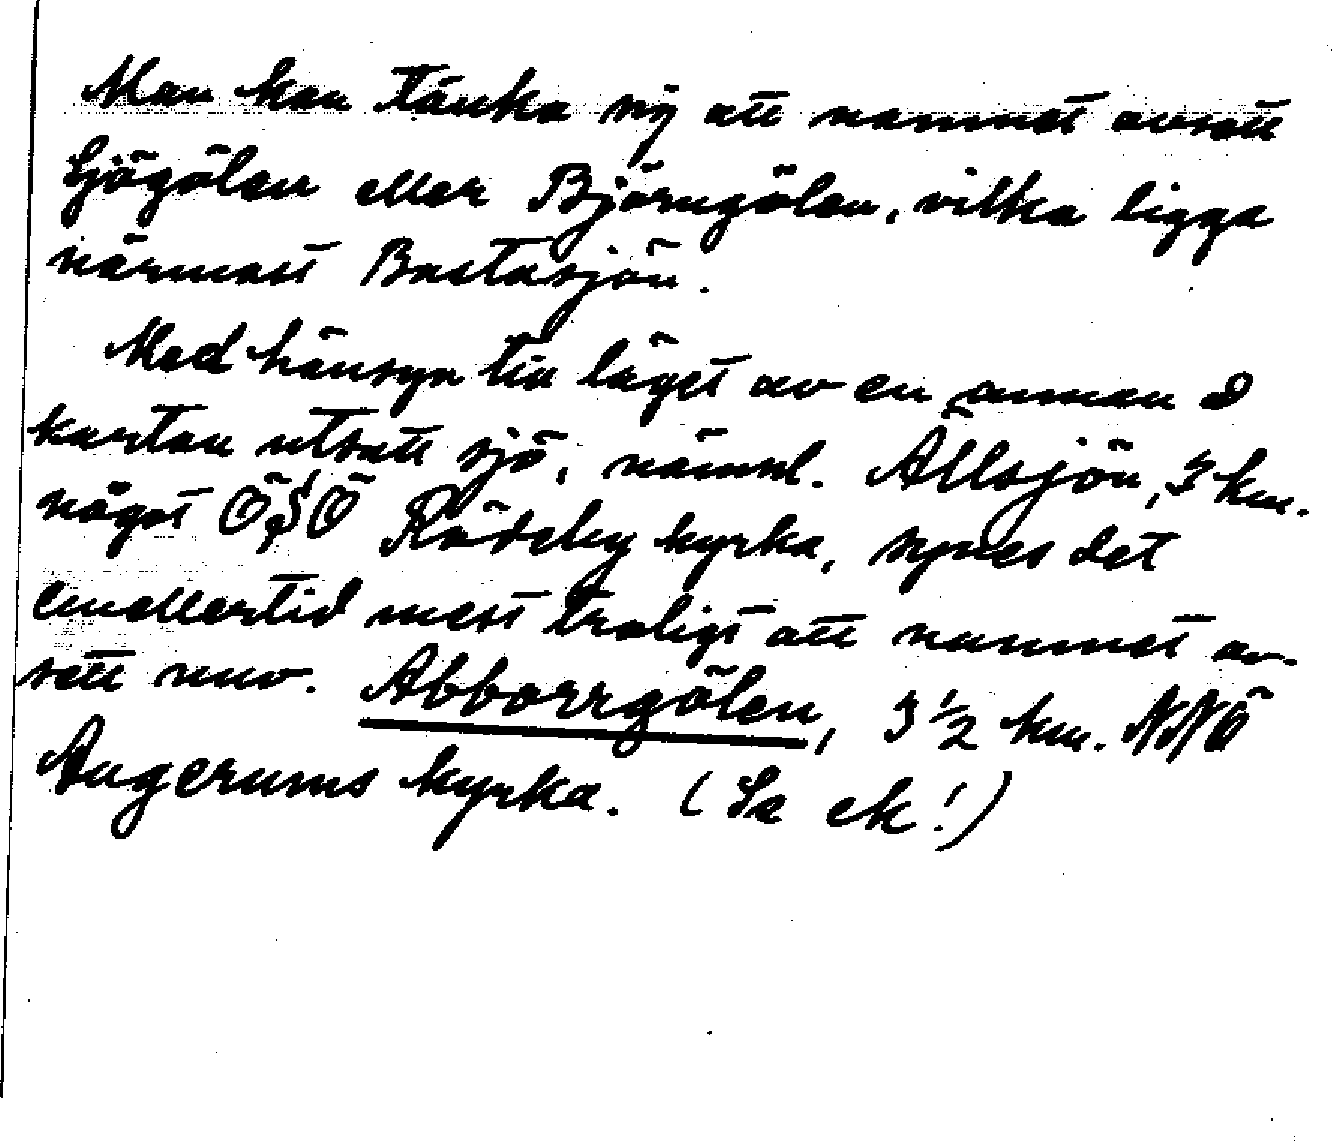 Man kan tänka sig att namnet avsett
Sjögölen eller Björngölen, vilka ligga
närmast Bastasjön.
Med hänsyn till läget av en annan å
kartan utsatt sjö, nämnl. Allsjön, 3 km.
något ÖSÖ Rödeby kyrka, synes det
emellertid mest troligt att namnet av-
sett nuv. Abborrgölen, 3 1/2 km. NNÖ
Augerums kyrka. (Se ek!)